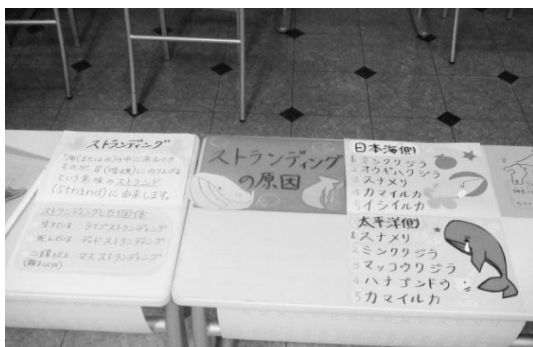 ストランディング
"海(または水)の中にあるべき
ものが、岸(暗礁)にのりあげる
という意味のストランド
(Strand)に由来します。
ストランディングした個体
生きている ライブストランディング
死んでいる デッドストランディング
二頭以上 マスストランディング
ストランディング
の原因
日本海側
1 ミンククジラ
2 オウギハクジラ
3 スナメリ
4 カマイルカ
5 イシイルカ
太平洋側
1 スナメリ
2 ミンククジラ
3 マッコウクジラ
4 ハナゴンドウ
5 カマイルカ